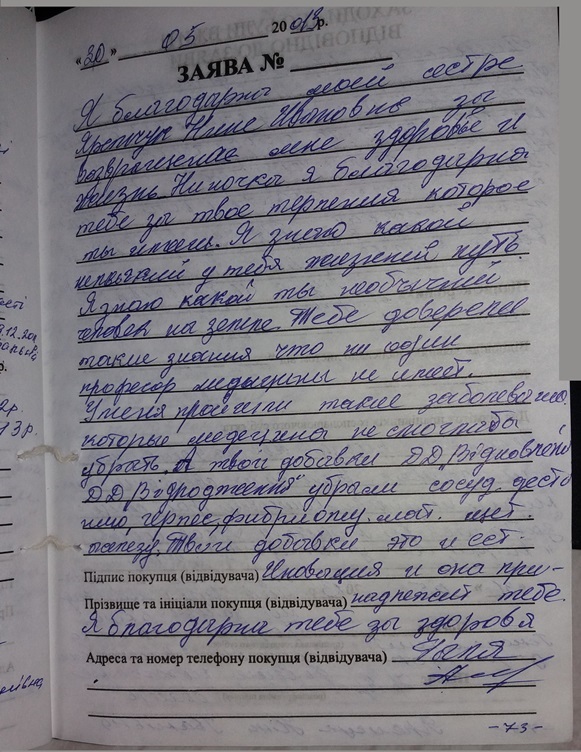 "30" 05 2013 р.
ЗАЯВА №
Я благодарна моей сестре
Нине Ивановне за
мне здоровье и
жизнь. Ниночка я благодарна
тебе за твое терпения которое
ты имееш. Я знаю какой
нелегкий у тебя жизненый путь.
Я знаю какой ты необычный
человек на земле. Тебе доверенее
такие знания что ни один
професор медецины не имеет.
У меня прошли такие заболевания.
которые медецина не смогла бы
убрать. А твои добавки Д.Д. "Відновлення
Д.Д "Відродження" убрали сосуд. дисто
нию, герпес, фибриому. мат. щет.
Твои добавки это и ест.
Підпис покупця (відвідувача) Иновация и она при-
Прізвище та ініціали покупця (відвідувача) надлежит тебе.
Я благодарна тебе за здоровя
Адреса та номер телефону покупця (відвідувача) Галя
-73-